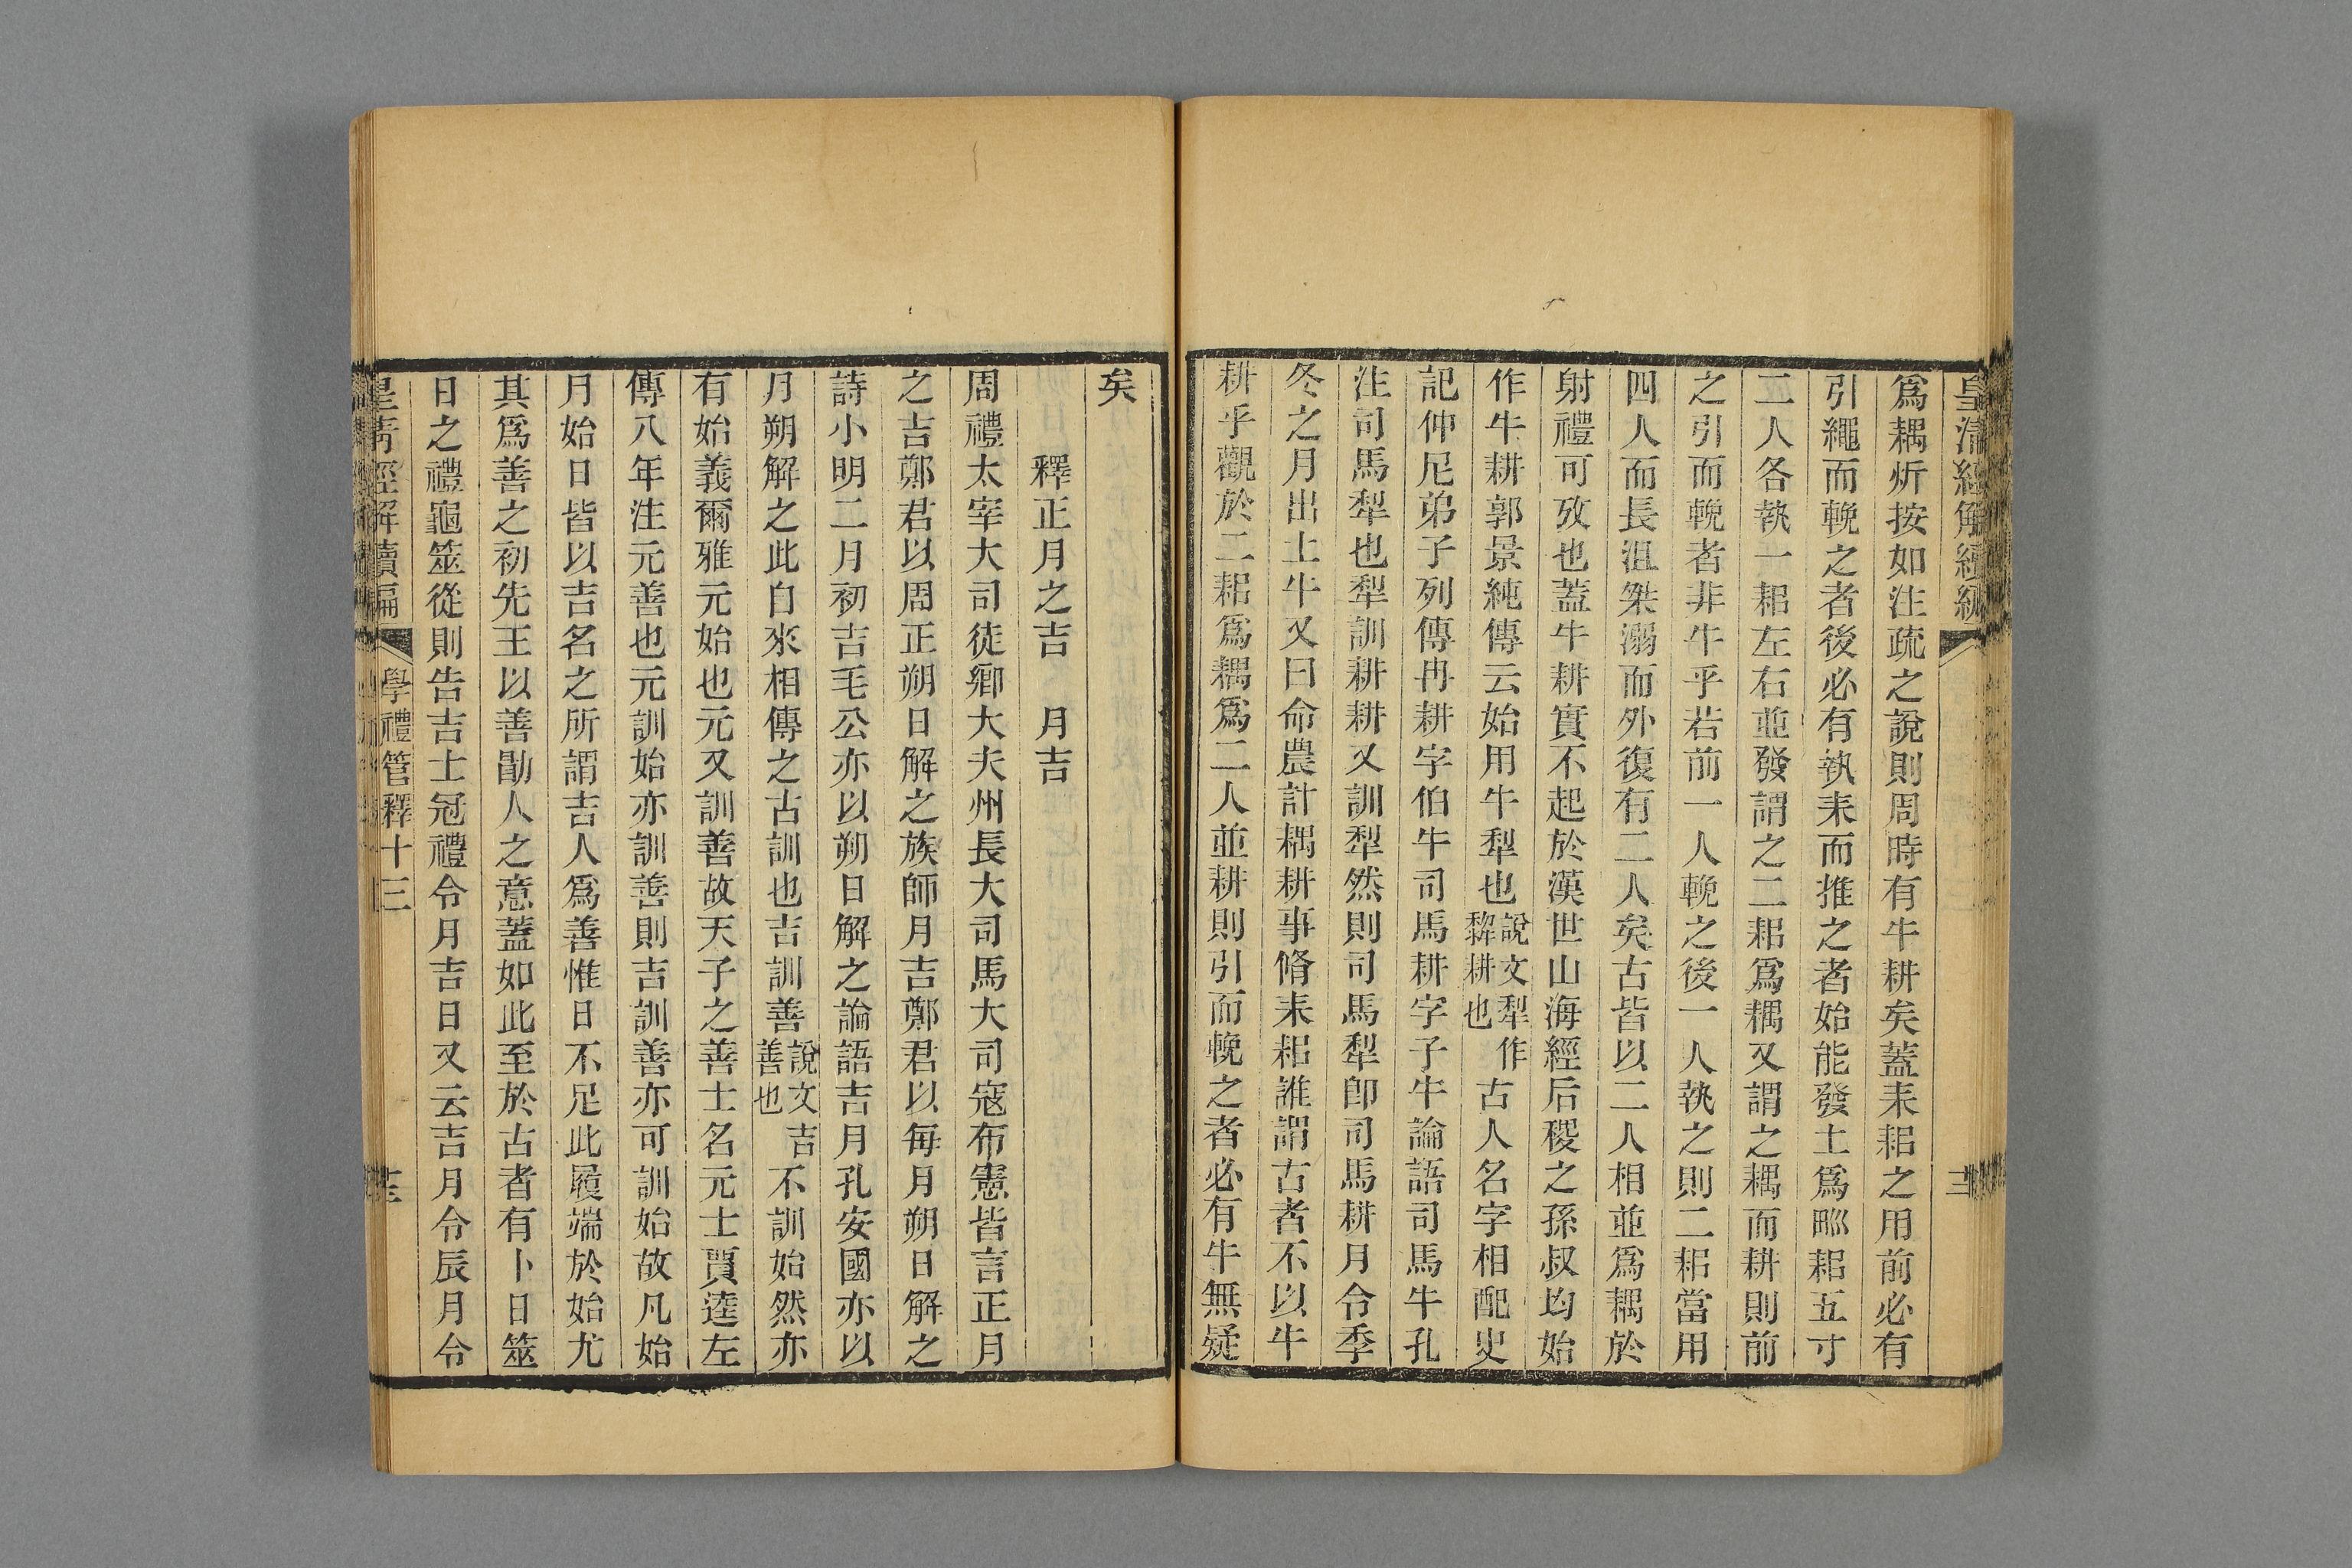 皇清經解續編
爲耦炘按如注疏之說則周時有牛耕矣蓋耒耜之用前必有
引繩而輓之者後必有執耒而推之者始能發土爲甽耜五寸
二人各執一耜左右並發謂之二耜爲耦又謂之耦而耕則前
之引而輓者非牛乎若前一人輓之後一人執之則二耜當用
四人而長沮桀溺而外復有二人矣古皆以二人相並爲耦於
射禮可攷也蓋牛耕實不起於漢世山海經后稷之孫叔均始
作牛耕郭景純傳云始用牛犁也說文犁作𤛿耕也古人名字相配史
記仲尼弟子列傳冉耕字伯牛司馬耕字子牛論語司馬牛孔
注司馬犁也犁訓耕耕又訓犁然則司馬犁卽司馬耕月令季
冬之月出土牛又曰命農計耦耕事脩耒耜誰謂古者不以牛
耕乎觀於二耜爲耦爲二人並耕則引而輓之者必有牛無疑
矣
釋正月之吉 月吉
周禮太宰大司徒鄉大夫州長大司馬大司寇布憲皆言正月
之吉鄭君以周正朔日解之族師月吉鄭君以每月朔日解之
詩小明二月初吉毛公亦以朔日解之論語吉月孔安國亦以
月朔解之此自來相傳之古訓也吉訓善說文吉善也不訓始然亦
有始義爾雅元始也元又訓善故天子之善士名元士賈逵左
傳八年注元善也元訓始亦訓善則吉訓善亦可訓始故凡始
月始日皆以吉名之所謂吉人爲善惟日不足此履端於始尤
其爲善之初先王以善勖人之意蓋如此至於古者有卜日筮
日之禮龜筮從則告吉士冠禮令月吉日又云吉月令辰月令
皇清經解續編 學禮管釋十三